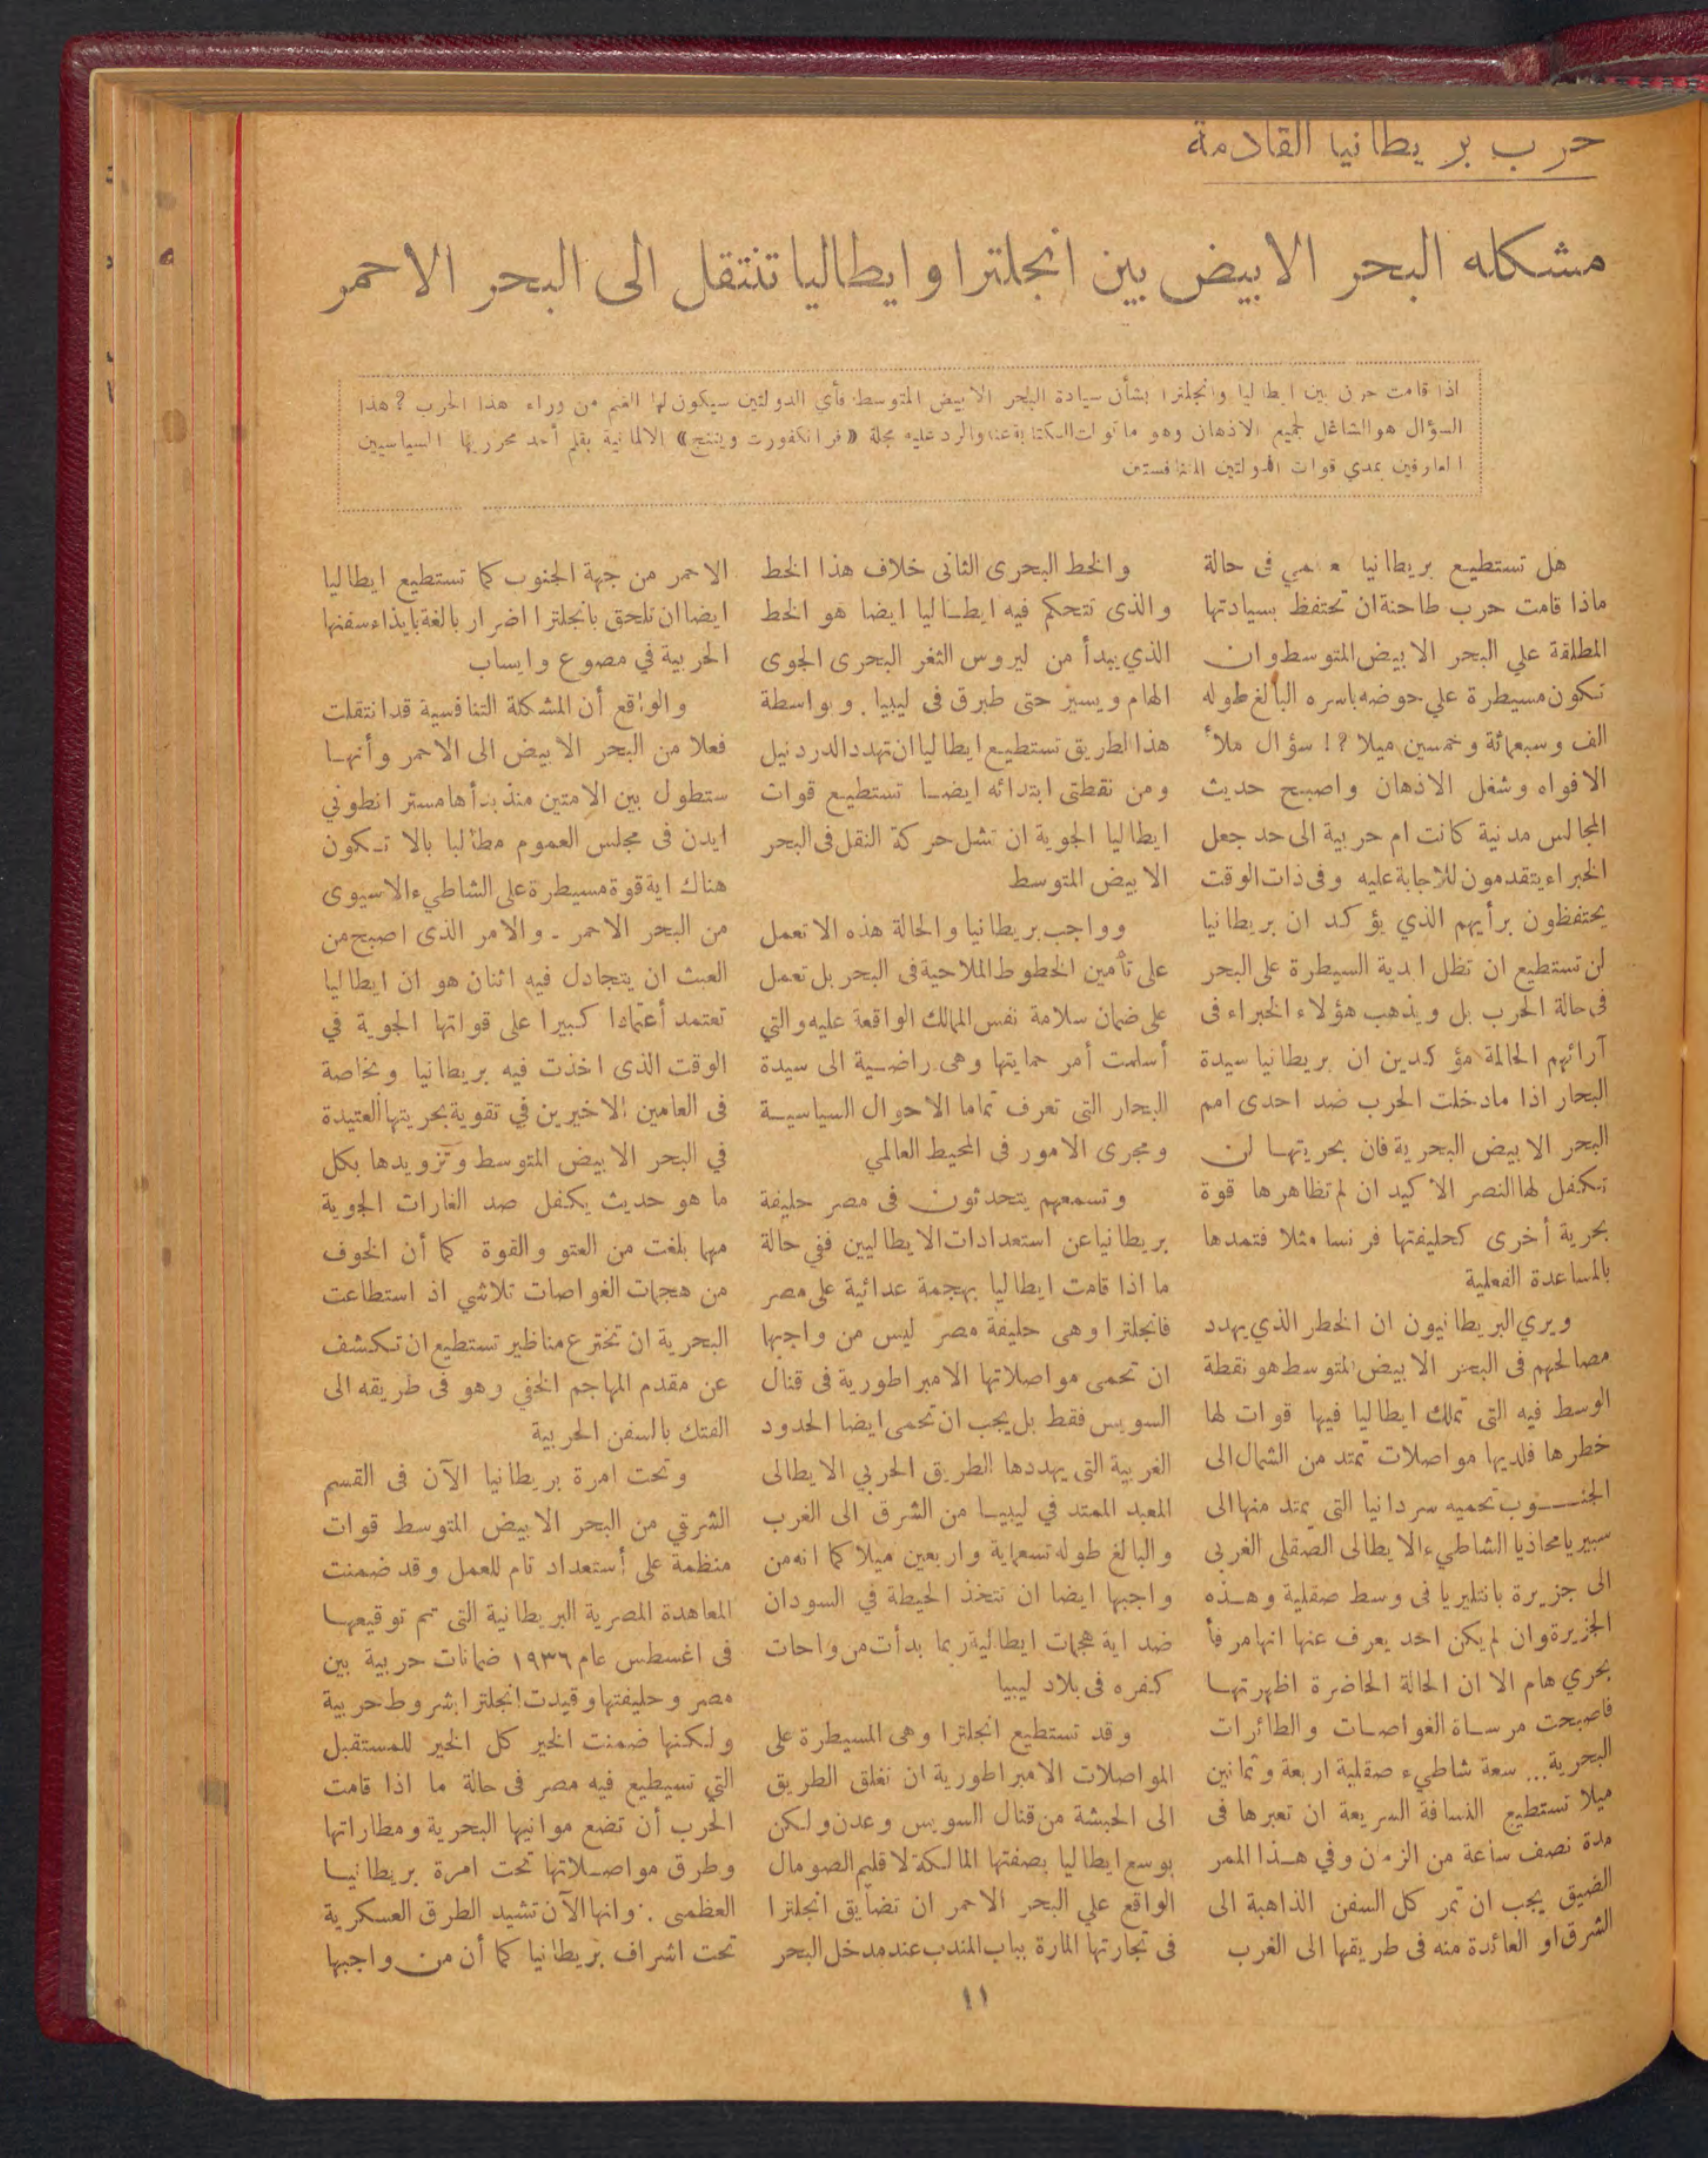 حرب بريطانيا القادمة
مشكله البحر الابيض بين انجلترا وايطاليا تنتقل الى البحر الاحمر
اذا قامت حرب بين ايطاليا وانجلترا بشأن سيادة البحر الابيض المتوسط فأي الدولتين سيكون لها الغنم من وراء هذا الحرب ؟ هذا
السؤال هو الشاغل لجميع الاذهان وهو ما تولت الكتابة عنه والرد عليه مجلة «فرانكفورت ويننج» الالمانية بقلم أحد محرريها السياسيين
العارفين بمدي قوات الدولتين المتنافستين
هل تستطيع بريطانيا في حالة
ماذا قامت حرب طاحنة ان تحتفظ بسيادتها
المطلقة علي البحر الابيض المتوسط وان
تكون مسيطرة علي حوضه باسره البالغ طوله
الف وسبعمائة وخمسين ميلا ؟! سؤال ملأ
الافواه وشغل الاذهان واصبح حديث
المجالس مدنية كانت ام حربية الى حد جعل
الخبراء يتقدمون للاجابة عليه وفى ذات الوقت
يحتفظون برأيهم الذي يؤكد ان بريطانيا
لن تستطيع ان تظل ابدية السيطرة على البحر
فى حالة الحرب بل ويذهب هؤلاء الخبراء فى
آرائهم الحالمة مؤكدين ان بريطانيا سيدة
البحار اذا مادخلت الحرب ضد احدى امم
البحر الابيض البحرية فان بحريتها لن
تكفل لها النصر الاكيد ان لم تظاهرها قوة
بحرية أخرى كحليفتها فرنسا مثلا فتمدها
بالمساعدة الفعلية
ويري البريطانيون ان الخطر الذي يهدد
مصالحهم فى البحر الابيض المتوسط هو نقطة
الوسط فيه التى تملك ايطاليا فيها قوات لها
خطرها فلديها مواصلات تمتد من الشمال الى
الجنوب تحميه سردانيا التى يمتد منها الى
سبيريا محاذيا الشاطىء الايطالى الصقلى الغربى
الى جزيرة بانتليريا فى وسط صقلية وهذه
الجزيرة وان لم يكن احد يعرف عنها انها مرفأ
بحري هام الا ان الحالة الحاضرة اظهرتها
فاصبحت مرساة الغواصات والطائرات
البحرية... سعة شاطيء صقلية اربعة وثمانين
ميلا تستطيع النسافة السريعة ان تعبرها فى
مدة نصف ساعة من الزمن وفي هذا الممر
الضيق يجب ان تمر كل السفن الذاهبة الى
الشرق او العائدة منه فى طريقها الى الغرب
والخط البحرى الثانى خلاف هذا الخط
والذى تتحكم فيه ايطاليا ايضا هو الخط
الذي يبدأ من ليروس الثغر البحرى الجوى
الهام ويسير حتى طبرق فى ليبيا . وبواسطة
هذا الطريق تستطيع ايطاليا ان تهدد الدردنيل
ومن نقطتى ابتدائه ايضا تستطيع قوات
ايطاليا الجوية ان تشل حركة النقل فى البحر
الابيض المتوسط
وواجب بريطانيا والحالة هذه الا تعمل
على تأمين الخطوط الملاحية فى البحر بل تعمل
على ضمان سلامة نفس الممالك الواقعة عليه والتي
أسلمت أمر حمايتها وهى راضية الى سيدة
البحار التى تعرف تماما الاحوال السياسية
ومجرى الامور فى المحيط العالمي
وتسمعهم يتحدثون فى مصر حليفة
بريطانيا عن استعدادات الايطاليين ففي حالة
ما اذا قامت ايطاليا بهجمة عدائية على مصر
فانجلترا وهى حليفة مصر ليس من واجبها
ان تحمى مواصلاتها الامبراطورية فى قنال
السويس فقط بل يجب ان تحمى ايضا الحدود
الغربية التى يهددها الطريق الحربي الايطالى
المعبد الممتد في ليبيا من الشرق الى الغرب
والبالغ طوله تسعماية واربعين ميلا كما انه من
واجبها ايضا ان تتخذ الحيطة في السودان
ضد اية هجمات ايطالية ربما بدأت من واحات
كفره فى بلاد ليبيا
وقد تستطيع انجلترا وهى المسيطرة على
المواصلات الامبراطورية ان تغلق الطريق
الى الحبشة من قنال السويس وعدن ولكن
بوسع ايطاليا بصفتها المالكة لاقليم الصومال
الواقع علي البحر الاحمر ان تضايق انجلترا
فى تجارتها المارة بباب المندب عند مدخل البحر
الاحمر من جهة الجنوب كما تستطيع ايطاليا
ايضا ان تلحق بانجلترا اضرار بالغة بايذاء سفنها
الحربية في مصوع وايساب
والواقع أن المشكلة التنافسية قد انتقلت
فعلا من البحر الابيض الى الاحمر وأنها
ستطول بين الامتين منذ بدأها مستر انطوني
ايدن فى مجلس العموم مطالبا بالا تكون
هناك اية قوة مسيطرة على الشاطيء الاسيوى
من البحر الاحمر . والامر الذى اصبح من
العبث ان يتجادل فيه اثنان هو ان ايطاليا
تعتمد أعتمادا كبيرا على قواتها الجوية في
الوقت الذى اخذت فيه بريطانيا وبخاصة
فى العامين الاخيرين في تقوية بحريتها العتيدة
في البحر الابيض المتوسط وتزويدها بكل
ما هو حديث يكفل صد الغارات الجوية
مهما بلغت من العتو والقوة كما أن الخوف
من هجمات الغواصات تلاشي اذ استطاعت
البحرية ان تخترع مناظير تستطيع ان تكشف
عن مقدم المهاجم الخفي وهو فى طريقه الى
الفتك بالسفن الحربية
وتحت امرة بريطانيا الآن فى القسم
الشرقي من البحر الابيض المتوسط قوات
منظمة على أستعداد تام للعمل وقد ضمنت
المعاهدة المصرية البريطانية التى تم توقيعها
فى اغسطس عام ١٩٣٦ ضمانات حربية بين
مصر وحليفتها وقيدت انجلترا بشروط حربية
ولكنها ضمنت الخير كل الخير للمستقبل
التي تسيطيع فيه مصر فى حالة ما اذا قامت
الحرب أن تضع موانيها البحرية ومطاراتها
وطرق مواصلاتها تحت امرة بريطانيا
العظمى . وانها الآن تشيد الطرق العسكرية
تحت اشراف بريطانيا كما أن من واجبها
١١